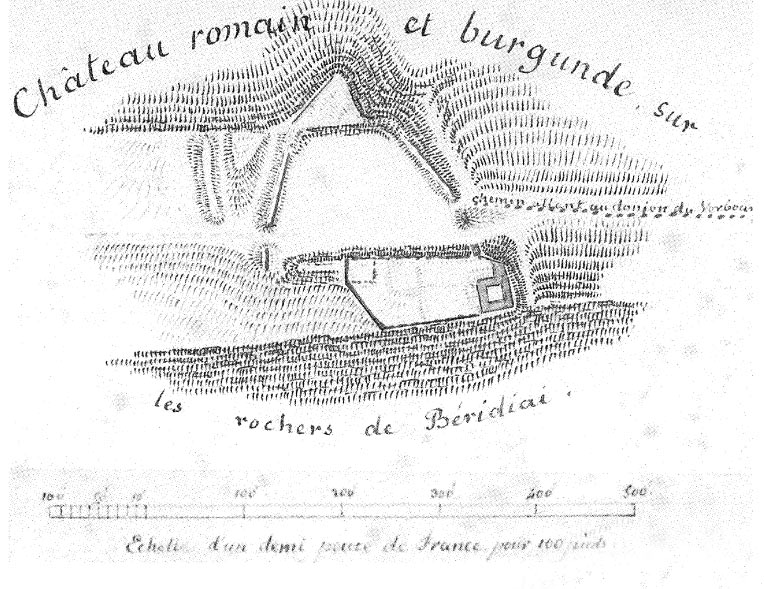 Château romain et burgunde sur
chemin allant au donjon du Vorbourg
les rochers de Béridiai.
100' 50' 10' 100' 200' 300' 400' 500'
Echelle d'un demi pouce de France pour 100 pieds